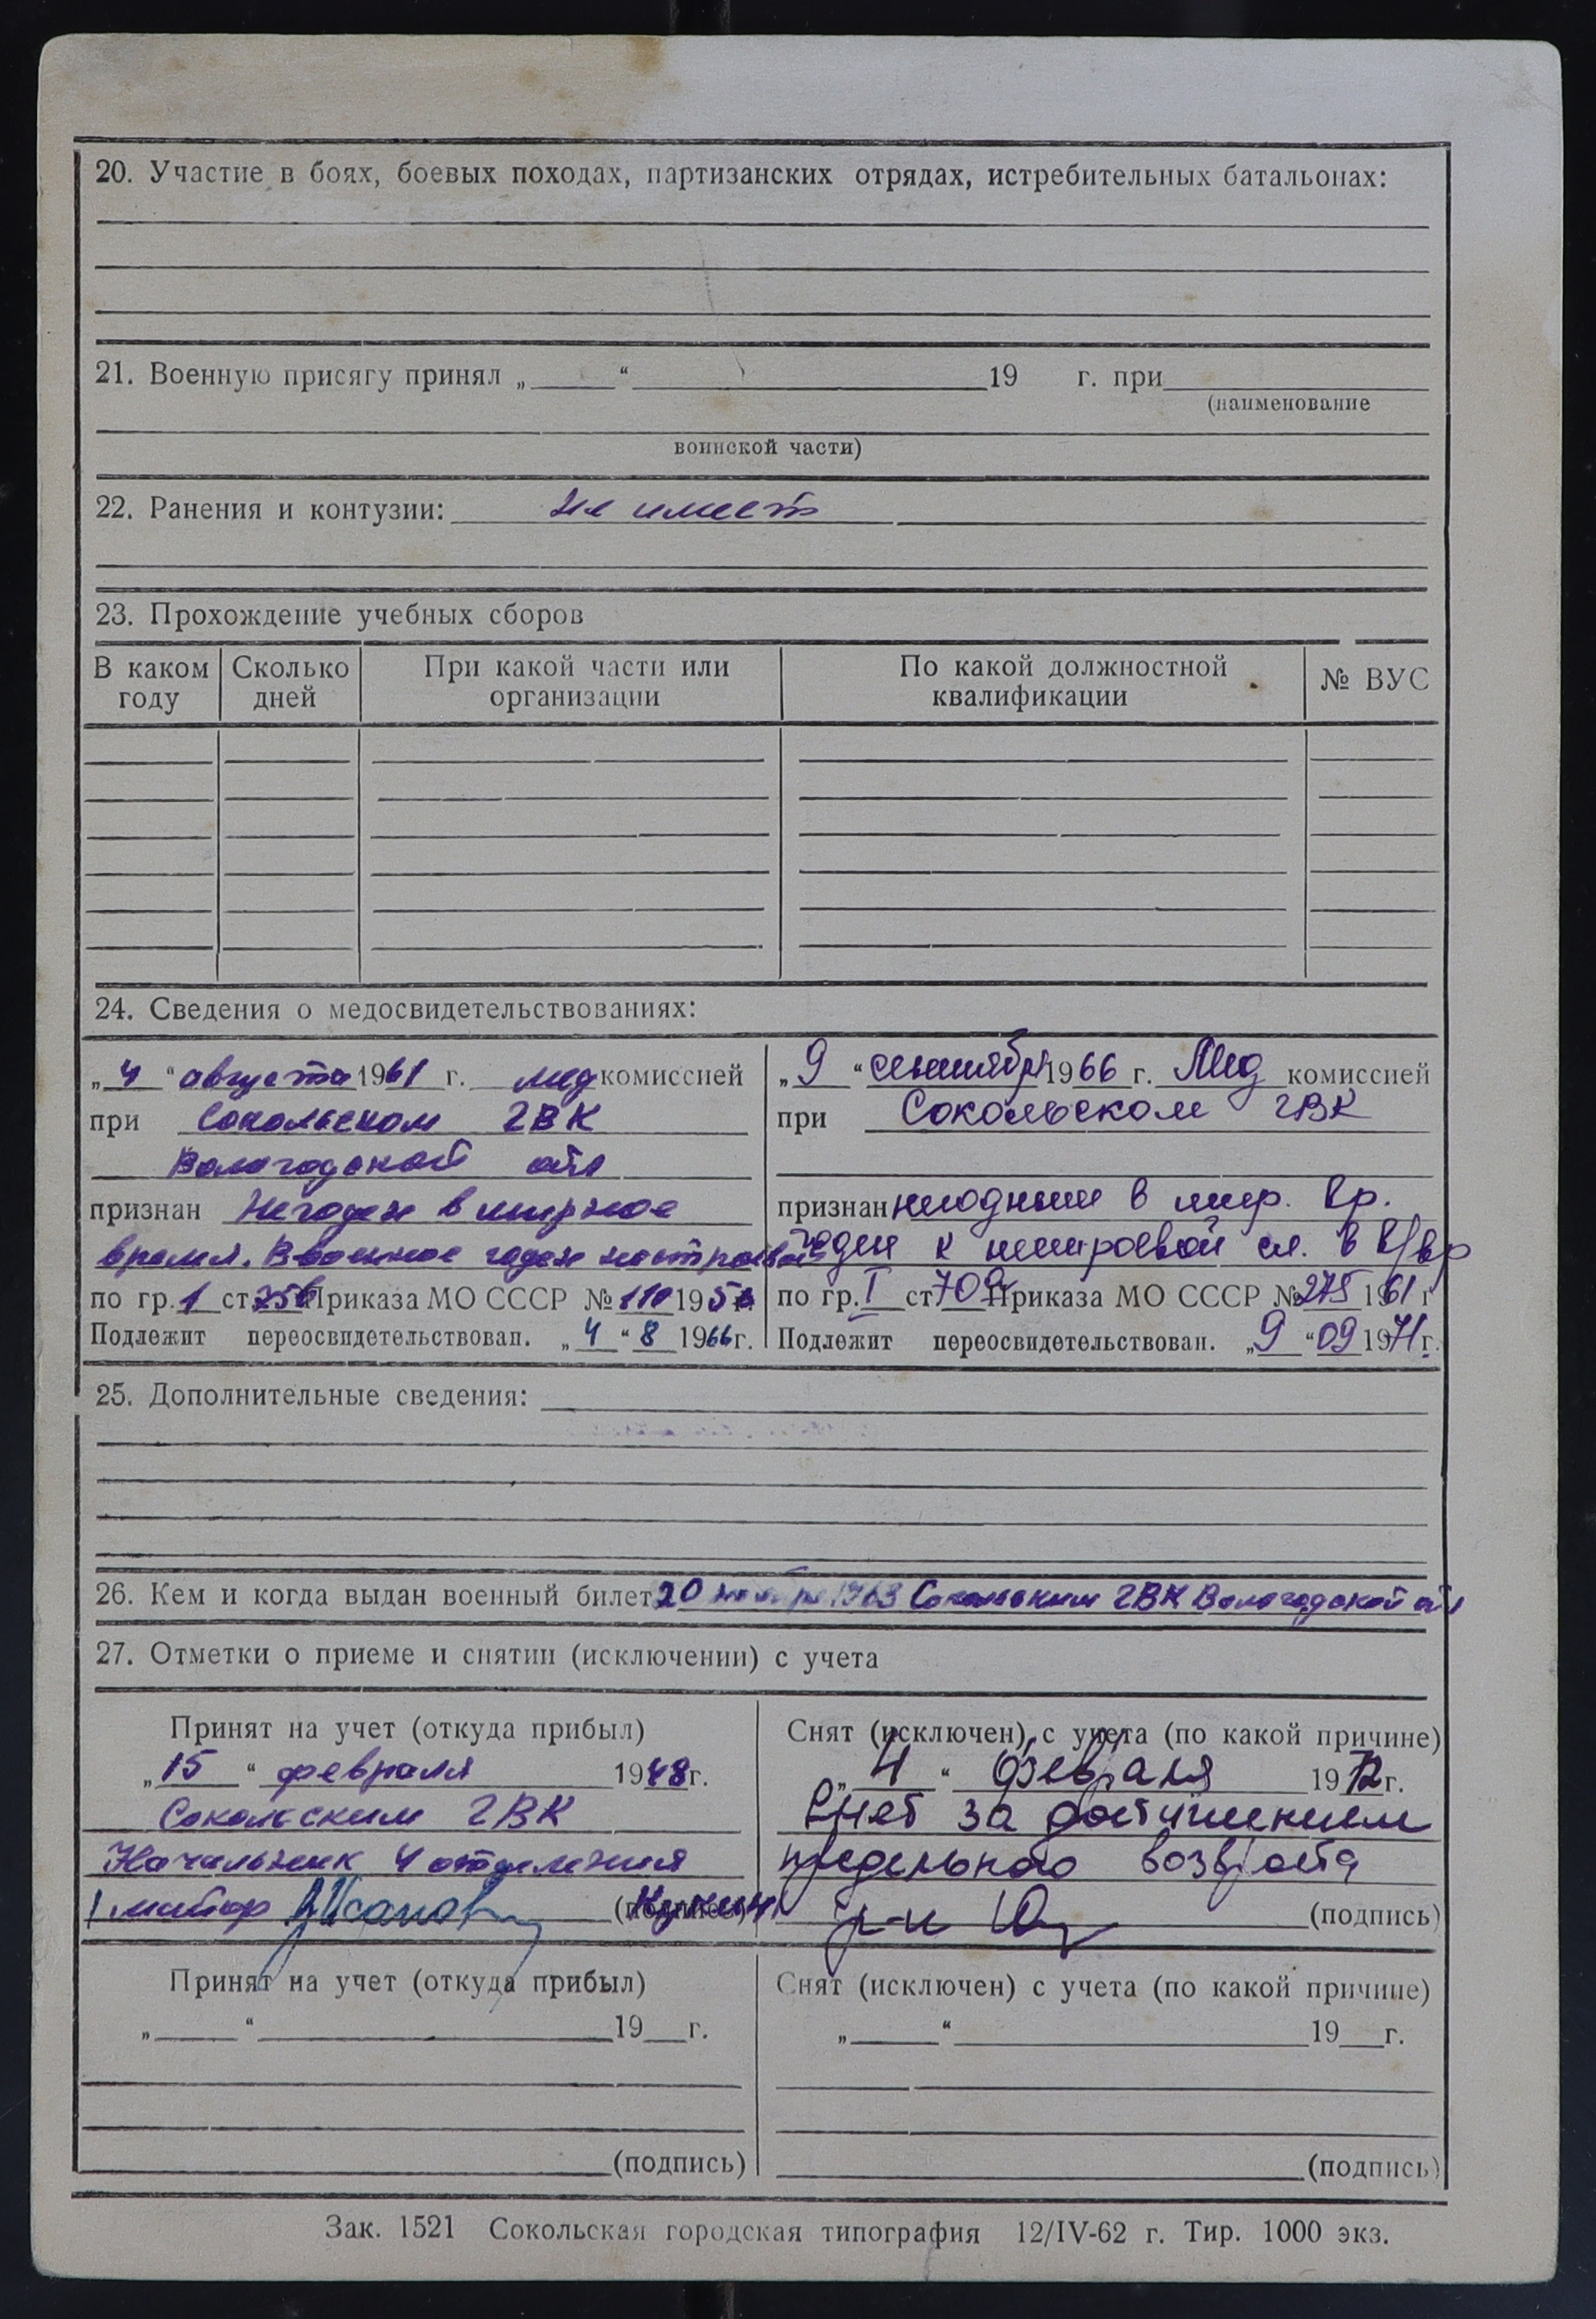 20. Участие в боях, боевых походах, партизанских отрядах, истребительных батальонах:
21. Военную присягу принял „ “ 19 г. при
(наименование
воинской части)
22. Ранения и контузии: не имеет
23. Прохождение учебных сборов
В каком году
Сколько дней
При какой части или организации
По какой должностной квалификации
№ ВУС
24. Сведения о медосвидетельствованиях:
„4“ августа 1961 г. мед комиссией
при Сокольском ГВК
Вологодской обл
признан Негоден в мирное
время. В военное годен нестроевой
по гр. 1 ст. 25б Приказа МО СССР № 110 195
Подлежит переосвидетельствован. „4“ 8 1966 г.
„9“ сентября 1966 г. Мед комиссией
при Сокольском ГВК
признан негодным в мир. вр.
годен к нестроевой сл. в в/вр
по гр. I ст 70а Приказа МО СССР № 275 1961 г
Подлежит переосвидетельствован. „9“ 09 1971 г.
25. Дополнительные сведения:
26. Кем и когда выдан военный билет 20 ноября 1963 Сокольским ГВК Вологодской обл
27. Отметки о приеме и снятии (исключении) с учета
Принят на учет (откуда прибыл)
„15“ февраля 1948 г.
Сокольским ГВК
Начальник 4 отделения
майор (подпись)
Снят (исключен) с учета (по какой причине)
„4“ февраля 1972 г.
Снят за достижением
предельного возраста
(подпись)
Принят на учет (откуда прибыл)
„ “ 19 г.
(подпись)
Снят (исключен) с учета (по какой причине)
„ “ 19 г.
(подпись)
Зак. 1521 Сокольская городская типография 12/IV-62 г. Тир. 1000 экз.